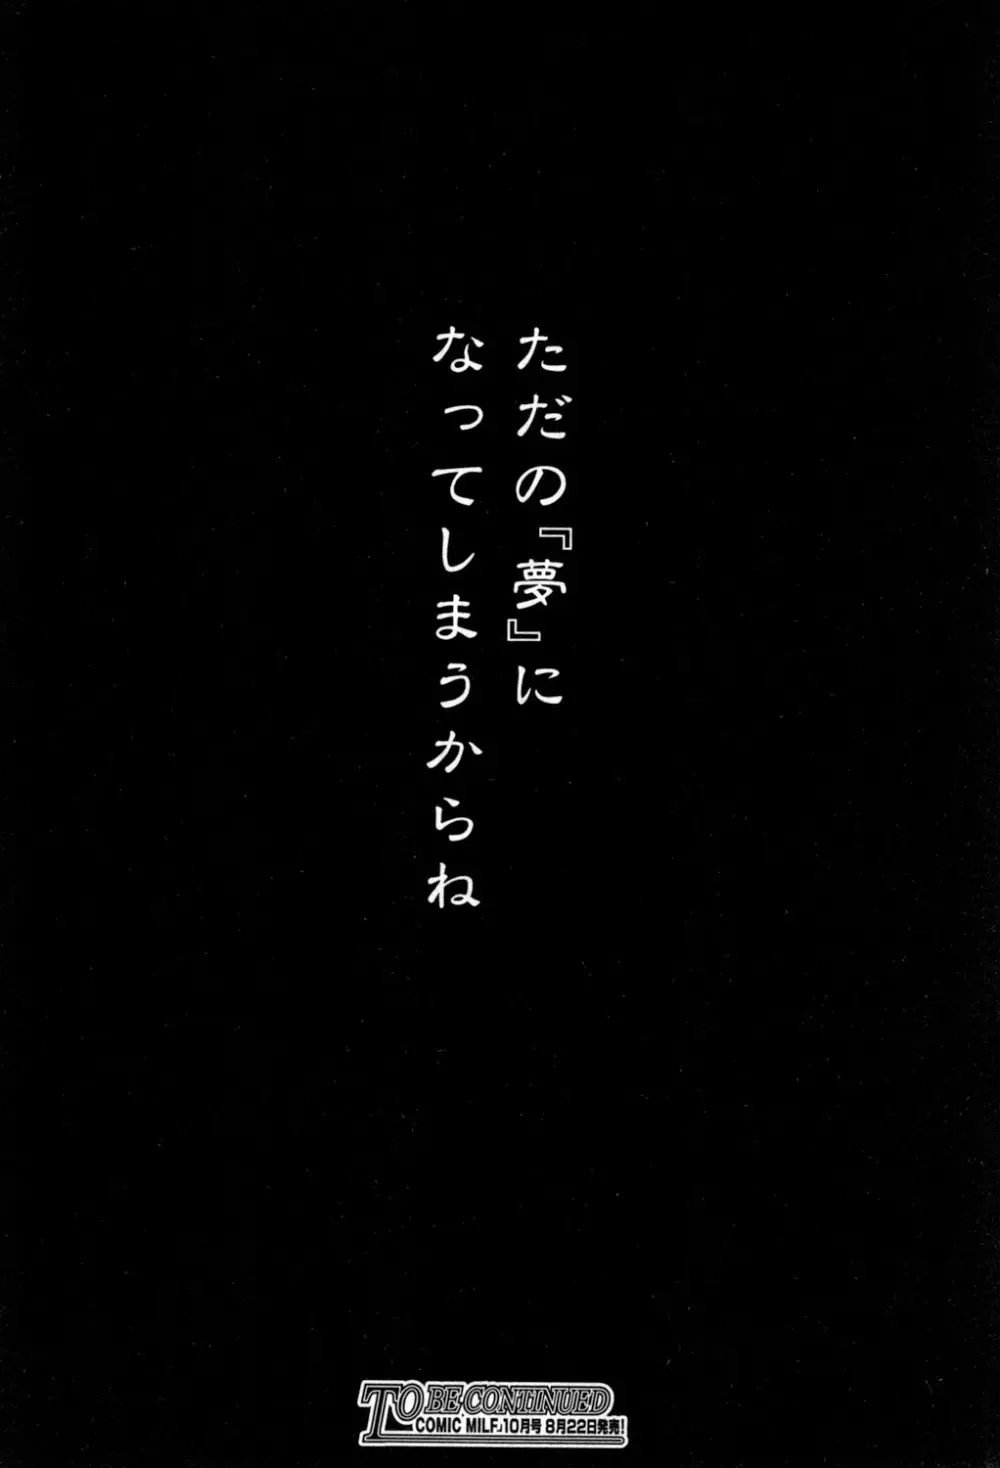 ただの『夢』に
なってしまうからね
TO BE CONTINUED
COMIC『MILF』10月号 8月22日発売!